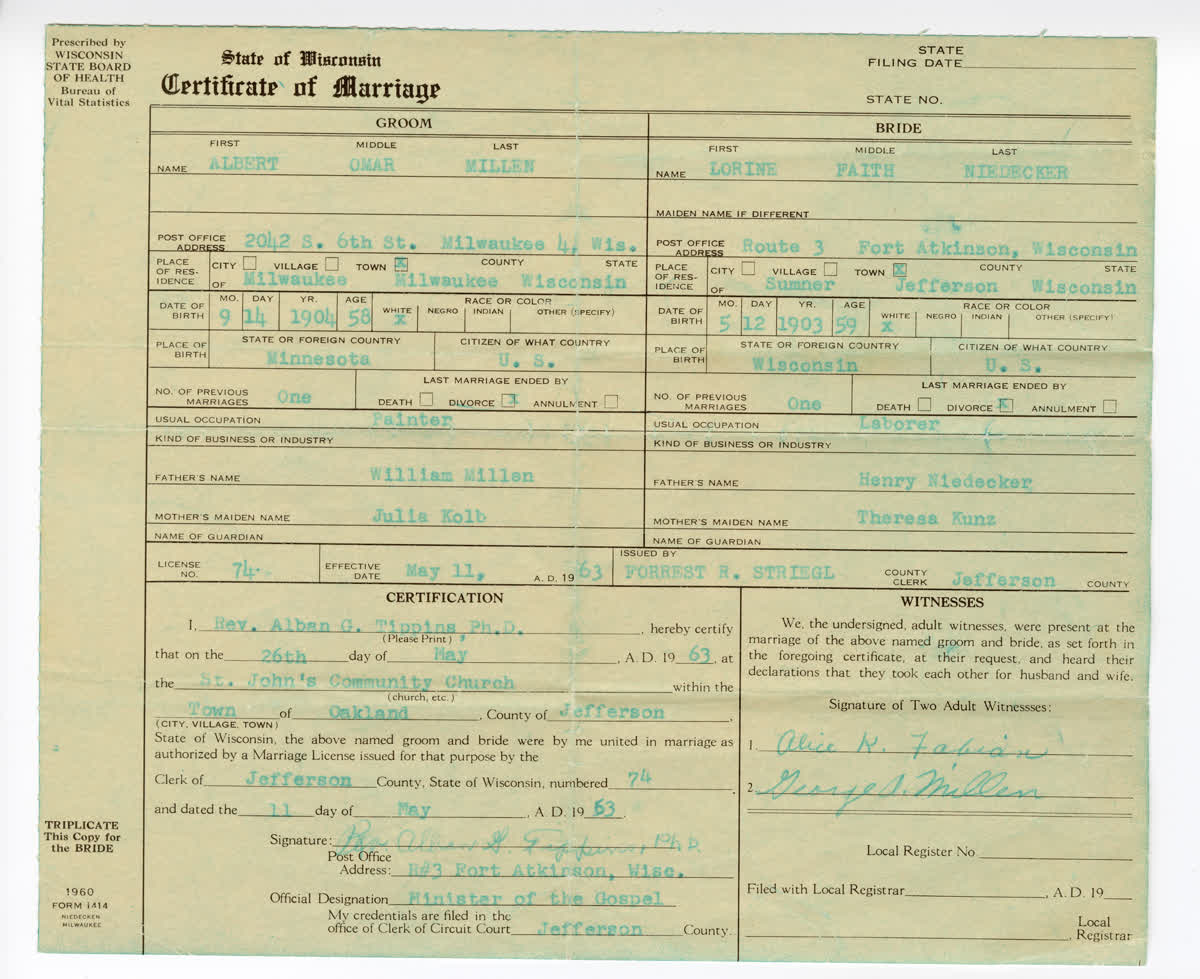 Prescribed by
WISCONSIN
STATE BOARD
OF HEALTH
Bureau of
Vital Statistics
State of Wisconsin
Certificate of Marriage
STATE
FILING DATE
STATE NO.
GROOM
FIRST MIDDLE LAST
NAME ALBERT OMAR MILLEN
POST OFFICE
ADDRESS 2042 S. 6th St. Milwaukee 4, Wis.
PLACE OF RESIDENCE CITY VILLAGE TOWN X COUNTY STATE
OF Milwaukee Milwaukee Wisconsin
DATE OF BIRTH MO. DAY YR. AGE RACE OR COLOR
9 14 1904 58 WHITE X NEGRO INDIAN OTHER (SPECIFY)
PLACE OF BIRTH STATE OR FOREIGN COUNTRY CITIZEN OF WHAT COUNTRY
Minnesota U. S.
LAST MARRIAGE ENDED BY
NO. OF PREVIOUS
MARRIAGES One DEATH DIVORCE X ANNULMENT
USUAL OCCUPATION Painter
KIND OF BUSINESS OR INDUSTRY
FATHER'S NAME William Millen
MOTHER'S MAIDEN NAME Julia Kolb
NAME OF GUARDIAN
BRIDE
FIRST MIDDLE LAST
NAME LORINE FAITH NIEDECKER
MAIDEN NAME IF DIFFERENT
POST OFFICE
ADDRESS Route 3 Fort Atkinson, Wisconsin
PLACE OF RESIDENCE CITY VILLAGE TOWN X COUNTY STATE
OF Sumner Jefferson Wisconsin
DATE OF BIRTH MO. DAY YR. AGE RACE OR COLOR
5 12 1903 59 WHITE X NEGRO INDIAN OTHER (SPECIFY)
PLACE OF BIRTH STATE OR FOREIGN COUNTRY CITIZEN OF WHAT COUNTRY
Wisconsin U. S.
LAST MARRIAGE ENDED BY
NO. OF PREVIOUS
MARRIAGES One DEATH DIVORCE X ANNULMENT
USUAL OCCUPATION Laborer
KIND OF BUSINESS OR INDUSTRY
FATHER'S NAME Henry Niedecker
MOTHER'S MAIDEN NAME Theresa Kunz
NAME OF GUARDIAN
LICENSE NO. 74. EFFECTIVE DATE May 11, A. D. 19 63 ISSUED BY FORREST R. STRIEGL COUNTY CLERK Jefferson COUNTY
CERTIFICATION
I, Rev. Alban G. Tippins Ph.D. , hereby certify
(Please Print)
that on the 26th day of May , A. D. 19 63, at
the St. John's Community Church within the
(church, etc.)
Town of Oakland , County of Jefferson ,
(CITY, VILLAGE, TOWN)
State of Wisconsin, the above named groom and bride were by me united in marriage as
authorized by a Marriage License issued for that purpose by the
Clerk of Jefferson County, State of Wisconsin, numbered 74 ,
and dated the 11 day of May , A. D. 19 63.
Signature: Rev Alban G Tippins, Ph.D.
Post Office
Address: R#3 Fort Atkinson, Wisc.
Official Designation Minister of the Gospel
My credentials are filed in the
office of Clerk of Circuit Court Jefferson County.
WITNESSES
We, the undersigned, adult witnesses, were present at the
marriage of the above named groom and bride, as set forth in
the foregoing certificate, at their request, and heard their
declarations that they took each other for husband and wife.
Signature of Two Adult Witnessses:
1. Alice K. Fabian
2. George Millen
Local Register No.
Filed with Local Registrar , A. D. 19
Local
, Registrar
TRIPLICATE
This Copy for
the BRIDE
1960
FORM 1414
NIEDECKEN
MILWAUKEE